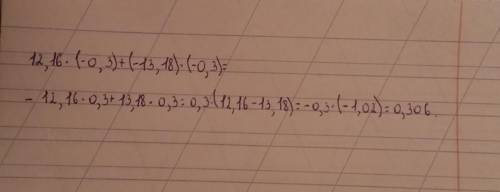 12,16 · (-0,3)+(-13,18)·(-0,3)=
- 12,16·0,3+13,18·0,3=0,3·(12,16-13,18)=-0,3·(-1,02)=0,306.